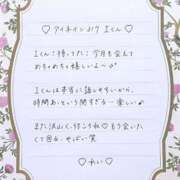 ♡ アイネイン ♪♡ Iくん ♡
Iくん!待ってた♡ 今月も会えて
めちゃめちゃ嬉しいよ〜♪
Iくんは本当に話しやすいから、
時間あっという間すぎる〜 楽しい♪
また沢山くっつこうね♡もう会いた
くて困る、やばい笑
♡ れい ♡